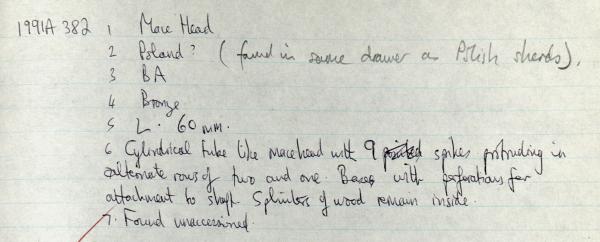 1991A 382 1 Mace Head
2 Poland? (found in same drawer as Polish sherds).
3 BA
4 Bronze
5 L. 60 mm.
6 Cylindrical tube like macehead with 9 pointed spikes protruding in
alternate rows of two and one. Base with perforations for
attachment to shaft. Splinters of wood remain inside.
7. Found unaccessioned.